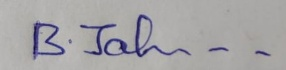 B. Jah - - -